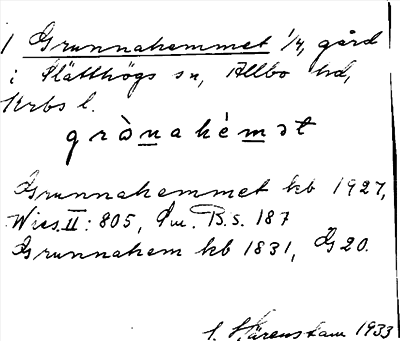 1 Grunnahemmet 1/4, gård
i Slätthögs sn, Allbo hd,
Krbs l.
grònahémət
Grunnahemmet kb 1927,
Wies. II: 805, Sv. B.S. 187
Grunnahem kb 1831, G 20.
S. Härenstam 1933